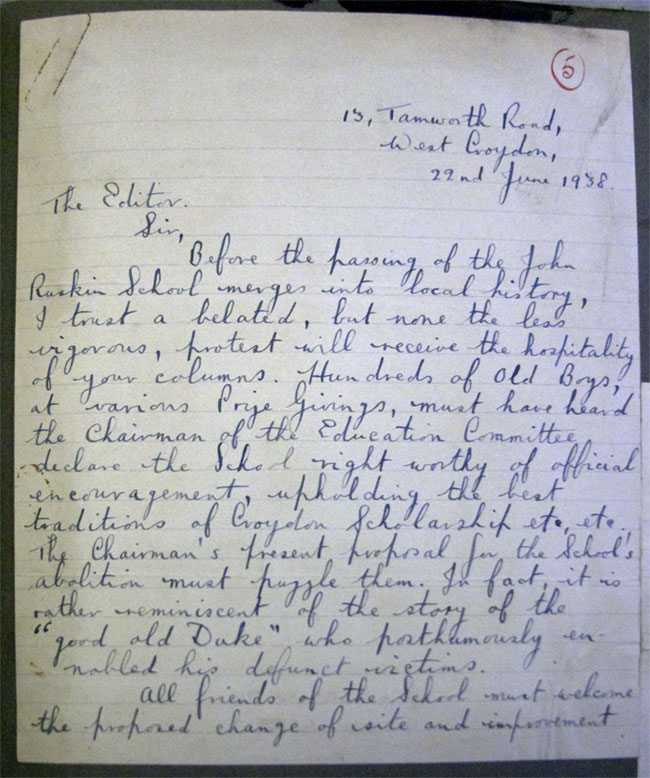 5
13, Tamworth Road,
West Croydon,
22nd June 1938.
The Editor.
Sir,
Before the passing of the John
Ruskin School merges into local history,
I trust a belated, but none the less
vigorous, protest will receive the hospitality
of your columns. Hundreds of Old Boys,
at various Prize Givings, must have heard
the Chairman of the Education Committee
declare the School right worthy of official
encouragement, upholding the best
traditions of Croydon Scholarship etc, etc.
The Chairman's present proposal for the School's
abolition must puzzle them. In fact, it is
rather reminiscent of the story of the
"good old Duke" who posthumously en-
nobled his defunct victims.
All friends of the School must welcome
the proposed change of site and improvement